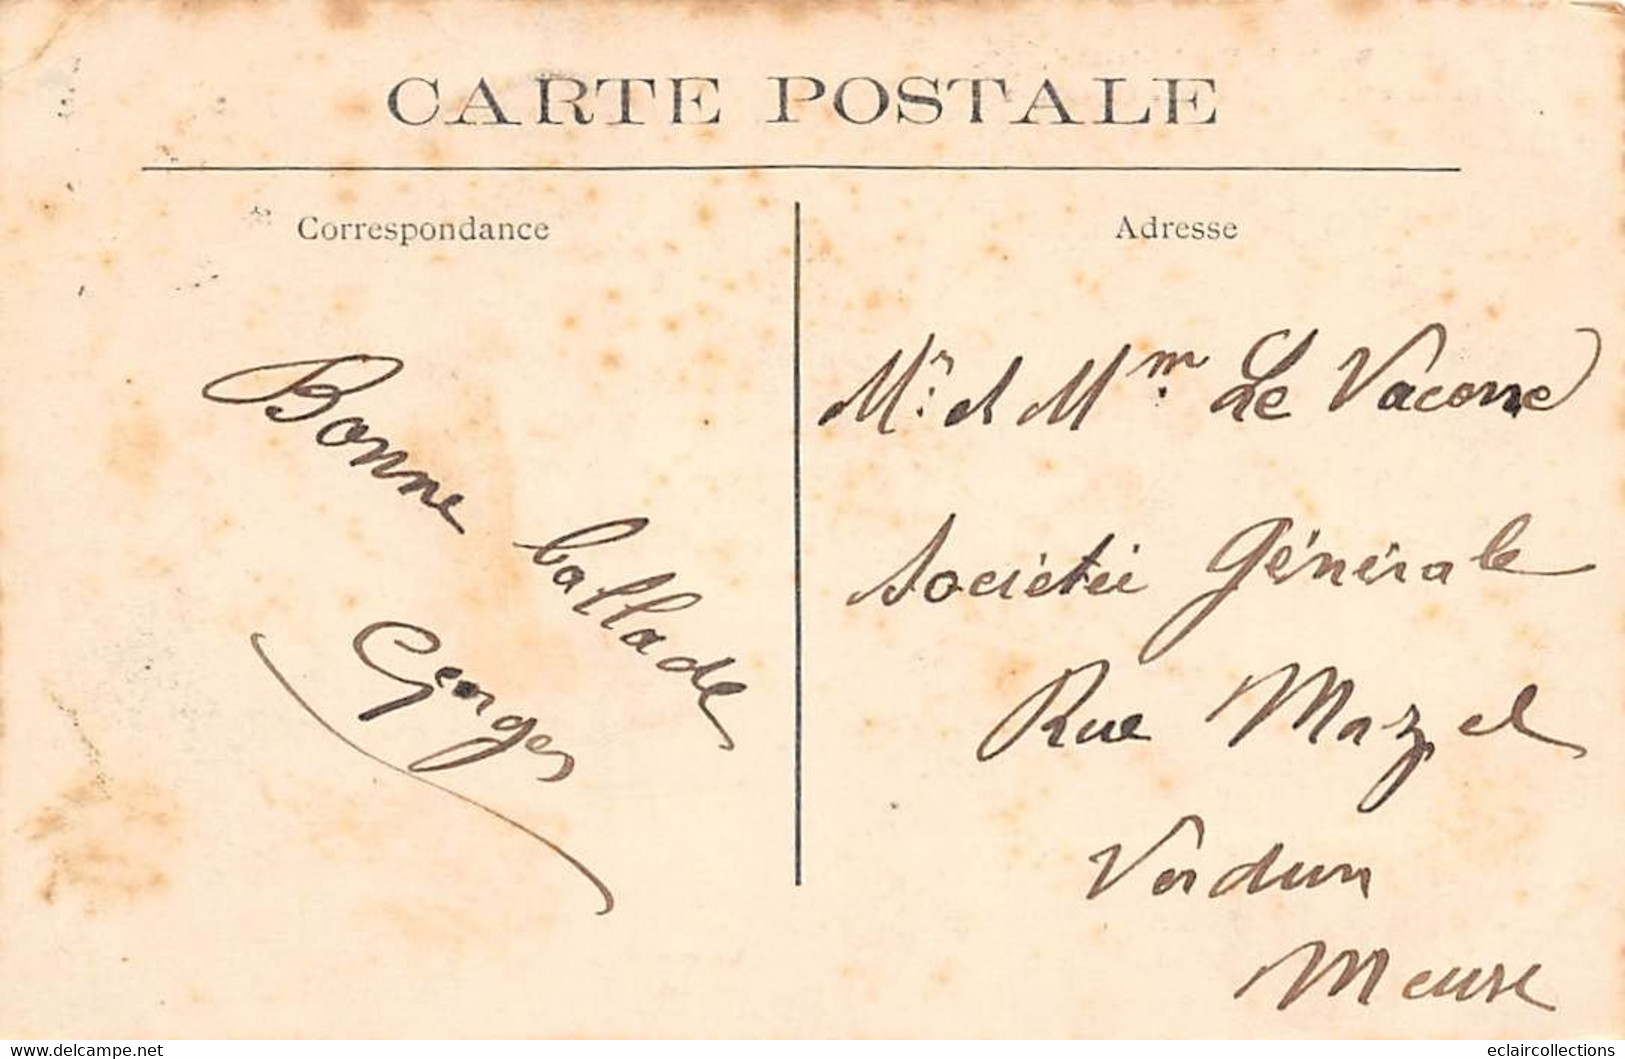 CARTE POSTALE
Correspondance
Bonne ballade
Georges
Adresse
Mr. et Mm. Le Vacorre
Société Générale
Rue Mazel
Verdun
Meuse
www.delcampe.net
eclaircollections